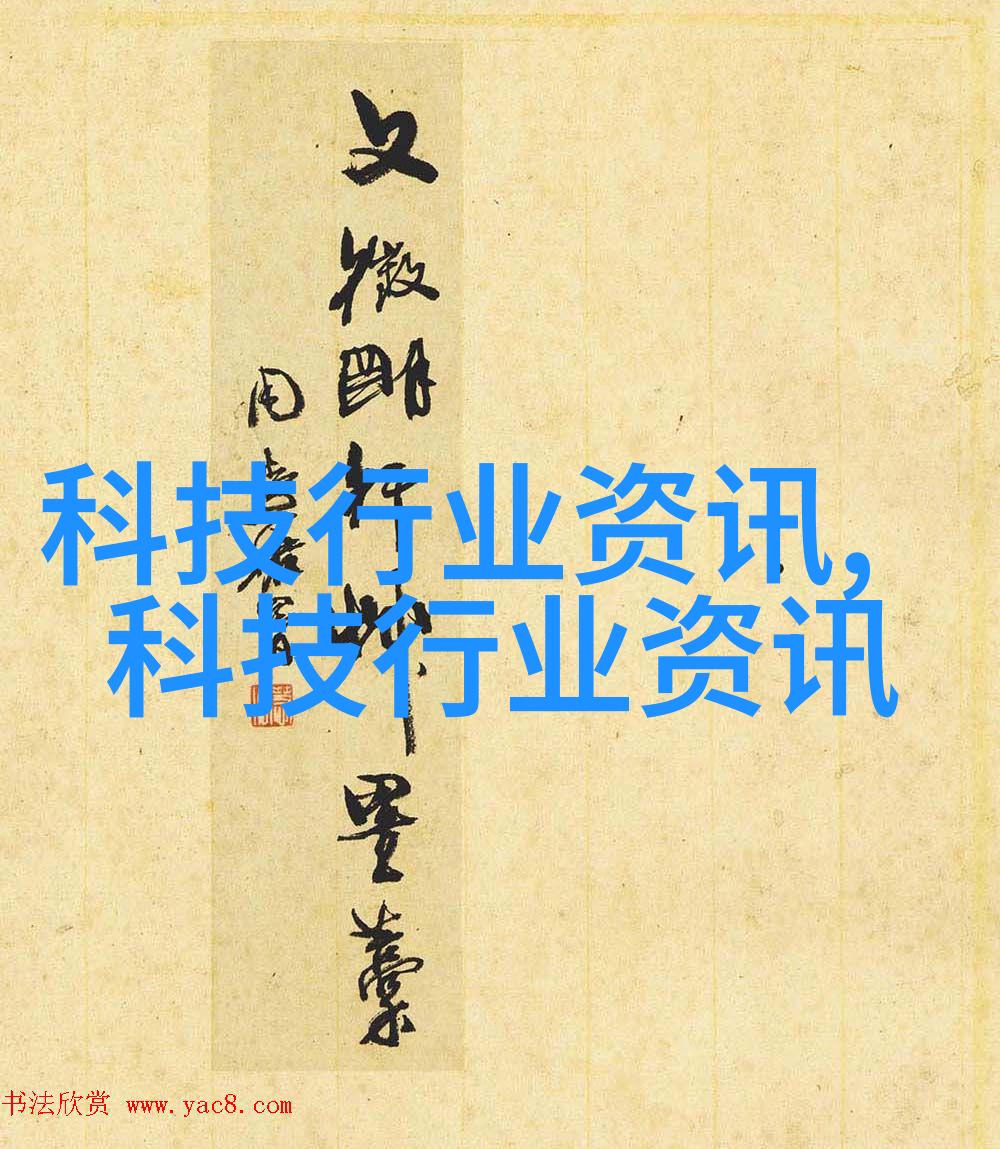 文徵明行草墨藁
周
科技行业资讯,
科技行业资讯
书法欣赏 www.yac8.com